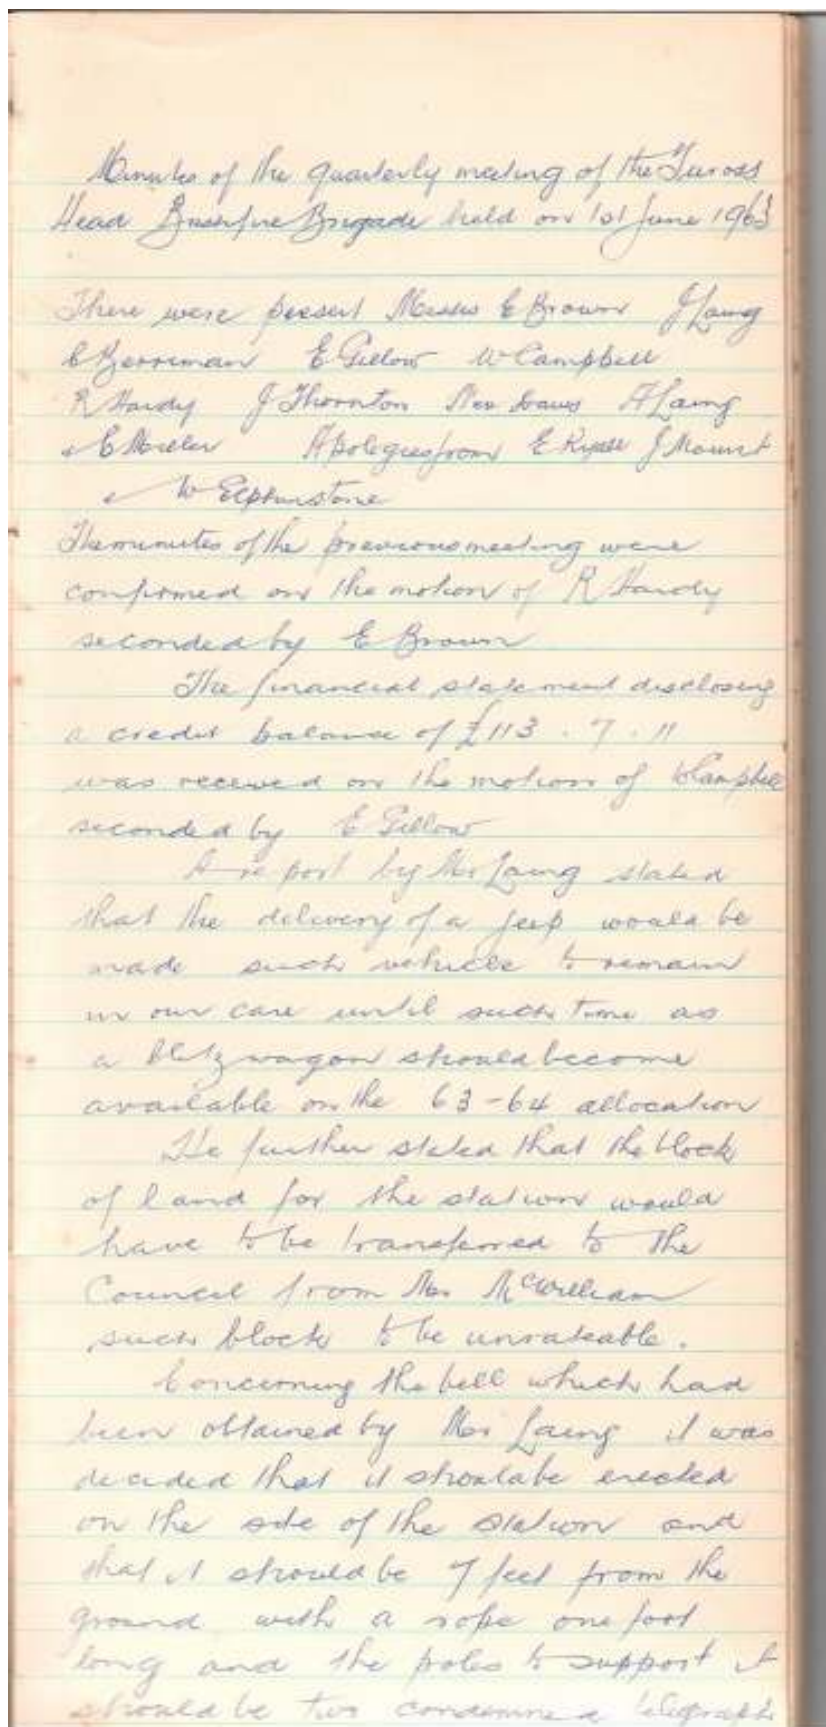 Minutes of the quarterly meeting of the Tuross
Head Bushfire Brigade held on 1st June 1963
There were present Messrs E Brown J Laing
C Berriman E Gillow W Campbell
R Hardy J Thornton A Laing
& C Miller Apologies from E J Mount
& W Elphinstone
The minutes of the previous meeting were
confirmed on the motion of R Hardy
seconded by E Brown
The financial statement disclosing
a credit balance of £113 . 7 . 11
was received on the motion of W Campbell
seconded by E Gillow
A report by Mr Laing stated
that the delivery of a jeep would be
made such vehicle to remain
in our care until such time as
a blitz wagon should become
available on the 63-64 allocation
He further stated that the block
of land for the station would
have to be transferred to the
Council from Mr McWilliam
such block to be unrateable.
Concerning the bell which had
been obtained by Mr Laing it was
decided that it should be erected
on the side of the station and
that it should be 7 feet from the
ground with a rope one foot
long and the poles to support it
should be two condemned telegraph